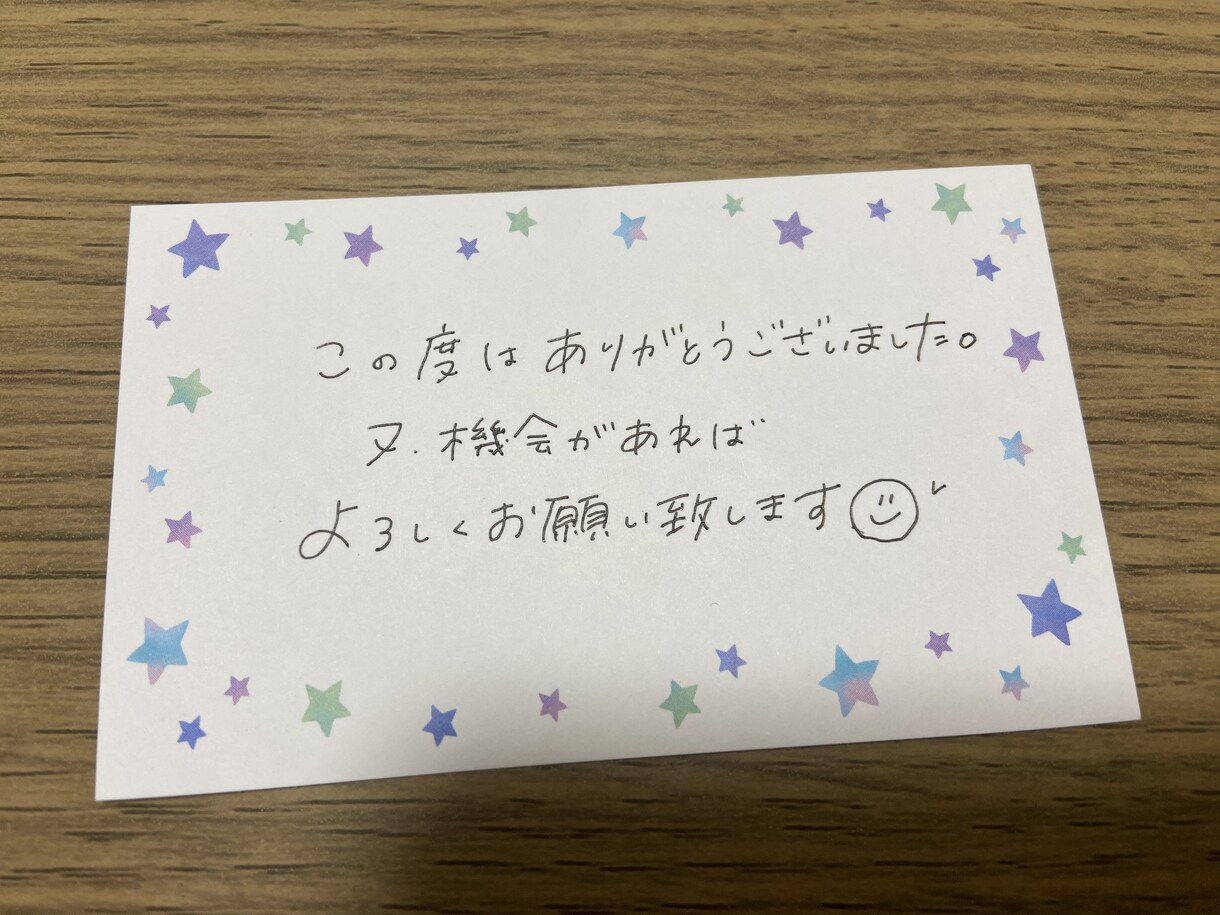 この度はありがとうございました。
又.機会があれば
よろしくお願い致します